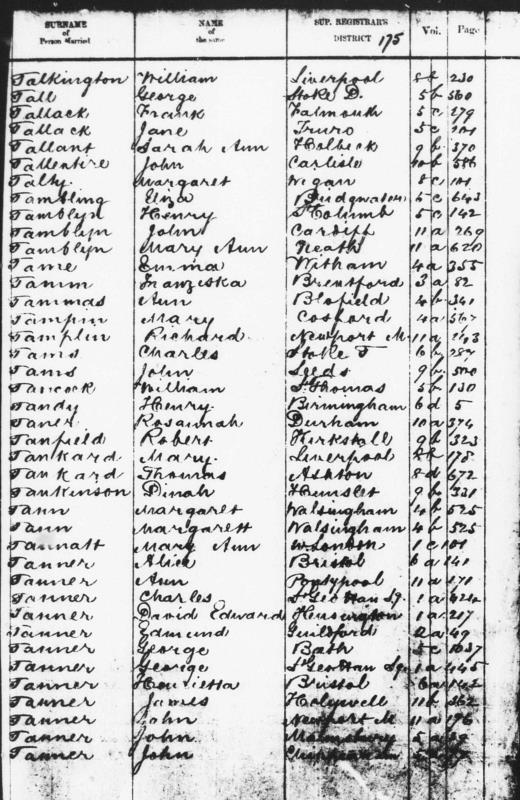 SURNAME of Person Married NAME of the same SUP. REGISTRAR'S DISTRICT 175 Vol. Page
Talkington William Liverpool 8b 230
Tall George Stoke D. 5b 560
Tallack Frank Falmouth 5c 279
Tallack Jane Truro 5c
Tallant Sarah Ann Holbeck 9b 370
Tallentire John Carlisle 10b 586
Talty Margaret Wigan 8c 101
Tambling Eliza Bridgwater 5c 643
Tamblyn Henry St Columb 5c 142
Tamblyn John Cardiff 11a 269
Tamblyn Mary Ann Neath 11a 620
Tame Emma Witham 4a 355
Tamm Franziska Brentford 3a 82
Tammas Ann Blofield 4b 341
Tampin Mary Cosford 4a 567
Tamplin Richard Newport M. 11a
Tams Charles Stoke T 6b 287
Tams John Leeds 9b
Tancock William St Thomas 5b 130
Tandy Henry Birmingham 6d 5
Taner Rosannah Durham 10a 374
Tanfield Robert Kirkstall 9b 323
Tankard Mary Liverpool 8b 178
Tankard Thomas Ashton 8d 672
Tankinson Dinah Hunslet 9b 331
Tann Margaret Walsingham 4b 525
Tann Margarett Walsingham 4b 525
Tannatt Mary Ann W. London 1c 101
Tanner Alice Bristol 6a 141
Tanner Ann Pontypool 11a
Tanner Charles St Geo Han Sq. 1a
Tanner David Edward Kensington 1a 217
Tanner Edmund Guildford 2a 49
Tanner George Bath 5c 1037
Tanner George St Geo Han Sq. 1a
Tanner Henrietta Bristol 6a 142
Tanner James Holywell 11b 362
Tanner John Newport M 11a 196
Tanner John Malmesbury 5a
Tanner John Chippenham 5a